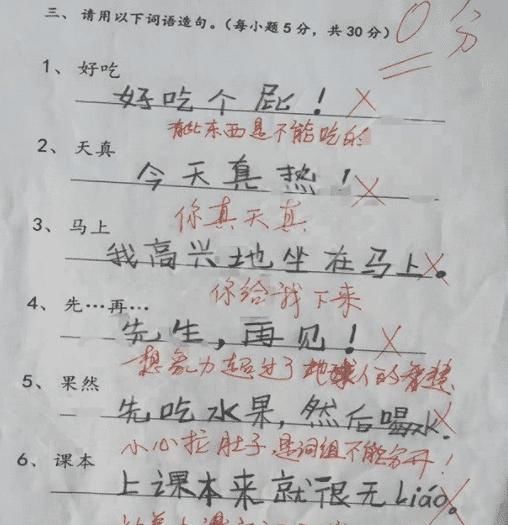 三、请用以下词语造句。(每小题5分，共30分)
0分
1、好吃
好吃个屁！
有些东西是不能吃的
2、天真
今天真热！
你真天真
3、马上
我高兴地坐在马上。
你给我下来
4、先…再…
先生，再见！
想象力超过了地球人的智慧
5、果然
先吃水果，然后喝水。
小心拉肚子，是词组不能分开！
6、课本
上课本来就很无Liáo。